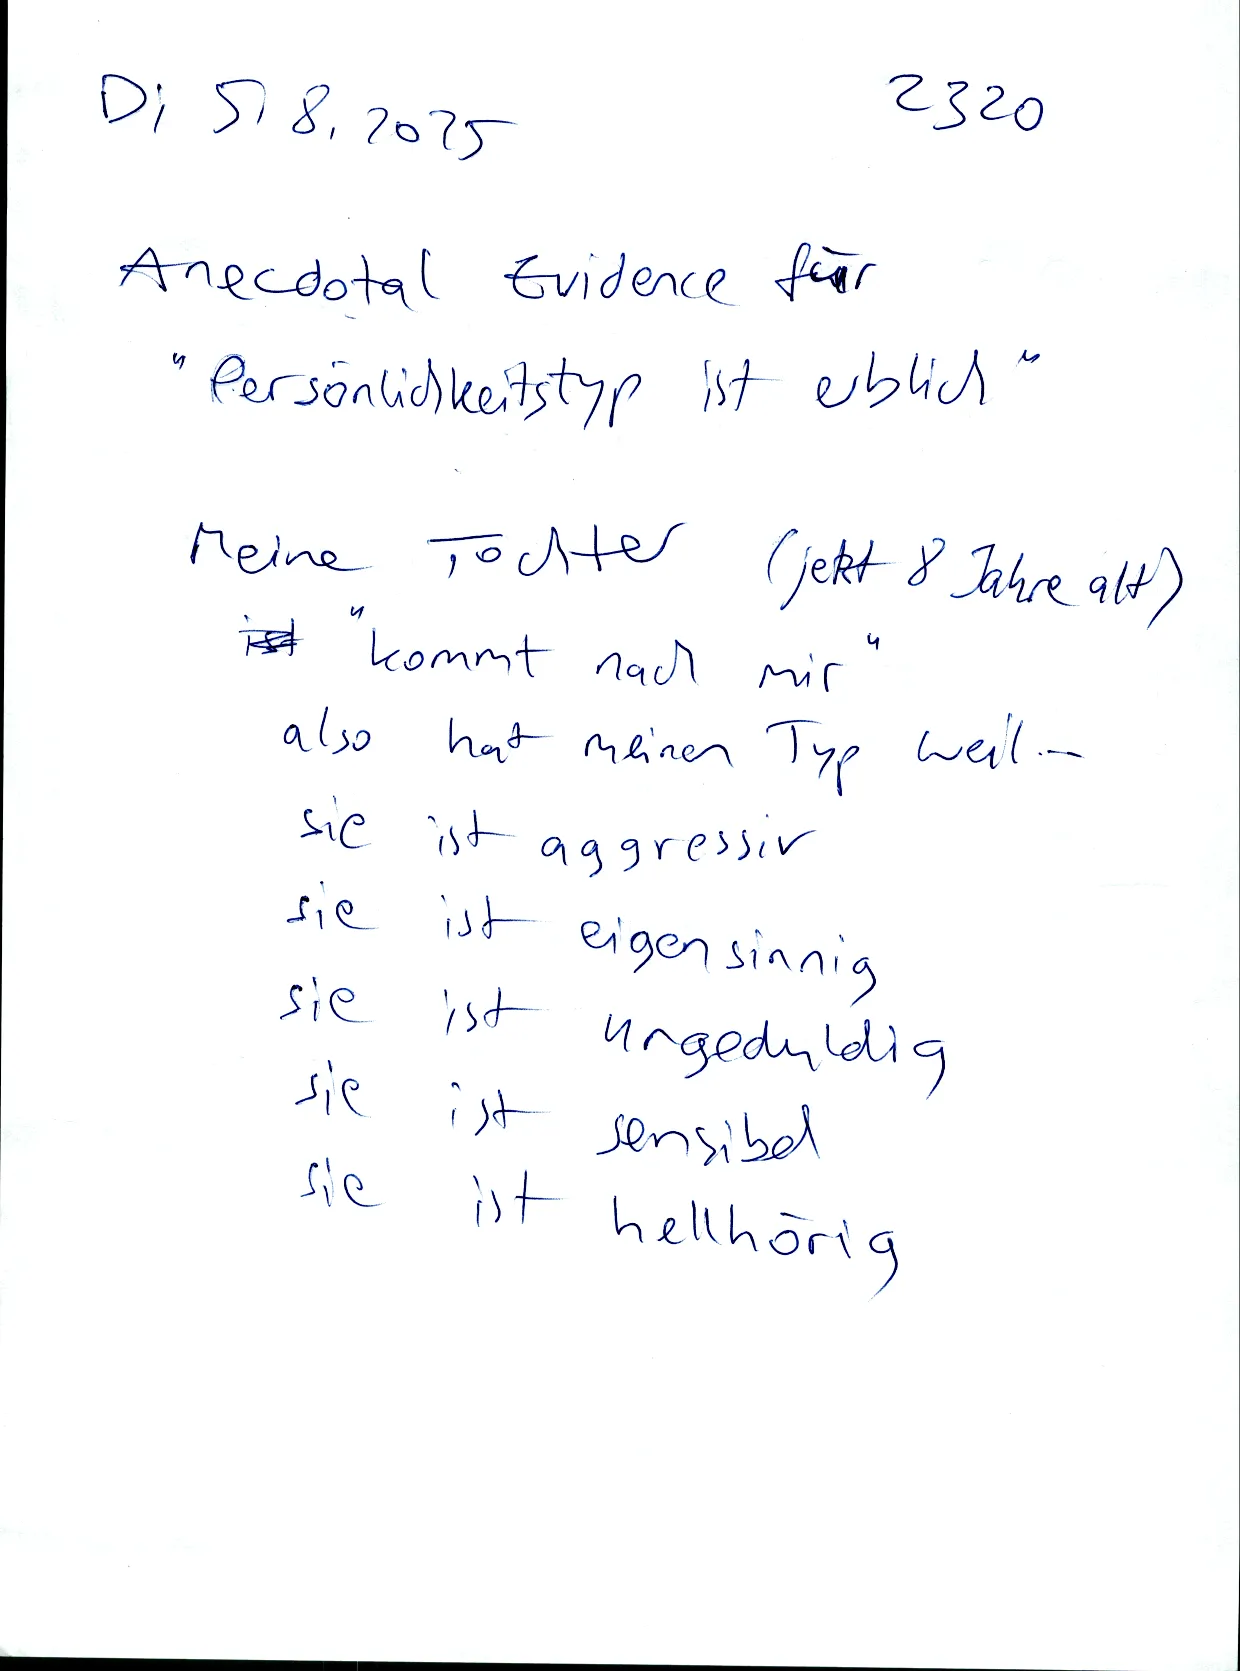 Di 5.8.2025 2320
Anecdotal Evidence für
"Persönlichkeitstyp ist erblich"
Meine Tochter (jetzt 8 Jahre alt)
ist "kommt nach mir"
also hat meinen Typ weil...
sie ist aggressiv
sie ist eigensinnig
sie ist ungeduldig
sie ist sensibel
sie ist hellhörig